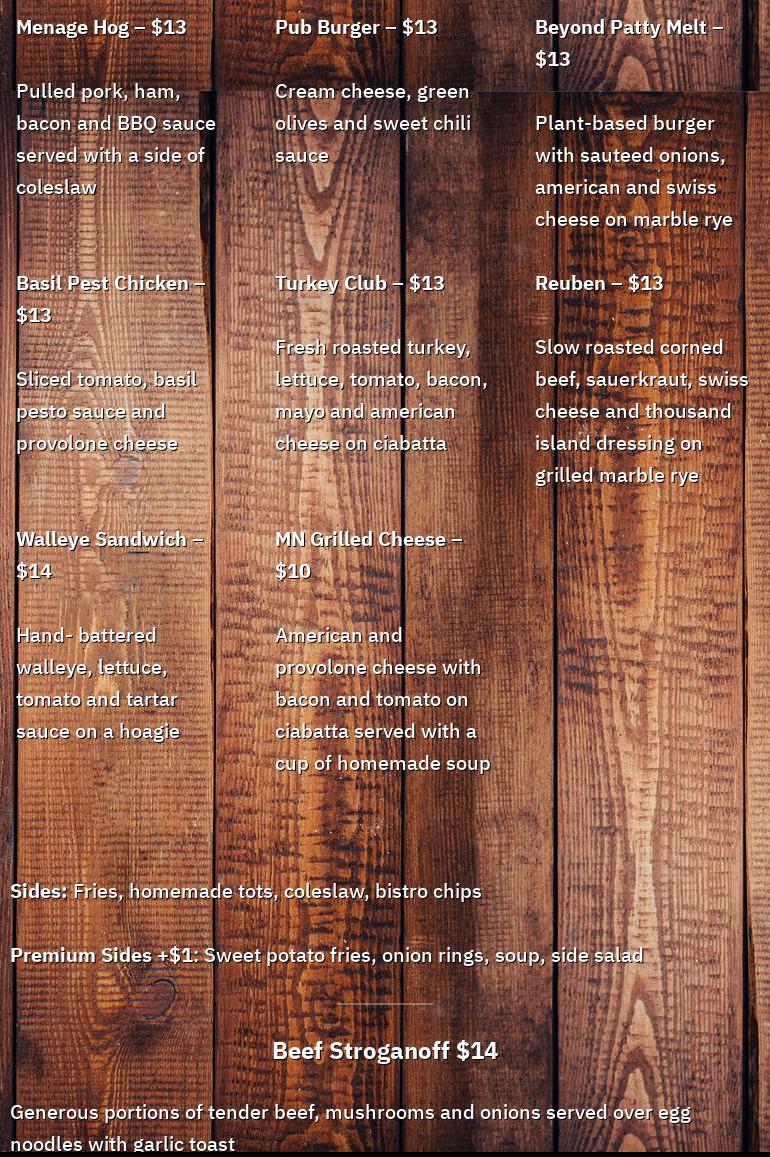 Menage Hog – $13
Pulled pork, ham,
bacon and BBQ sauce
served with a side of
coleslaw
Pub Burger – $13
Cream cheese, green
olives and sweet chili
sauce
Beyond Patty Melt –
$13
Plant-based burger
with sauteed onions,
american and swiss
cheese on marble rye
Basil Pest Chicken –
$13
Sliced tomato, basil
pesto sauce and
provolone cheese
Turkey Club – $13
Fresh roasted turkey,
lettuce, tomato, bacon,
mayo and american
cheese on ciabatta
Reuben – $13
Slow roasted corned
beef, sauerkraut, swiss
cheese and thousand
island dressing on
grilled marble rye
Walleye Sandwich –
$14
Hand- battered
walleye, lettuce,
tomato and tartar
sauce on a hoagie
MN Grilled Cheese –
$10
American and
provolone cheese with
bacon and tomato on
ciabatta served with a
cup of homemade soup
Sides: Fries, homemade tots, coleslaw, bistro chips
Premium Sides +$1: Sweet potato fries, onion rings, soup, side salad
Beef Stroganoff $14
Generous portions of tender beef, mushrooms and onions served over egg
noodles with garlic toast